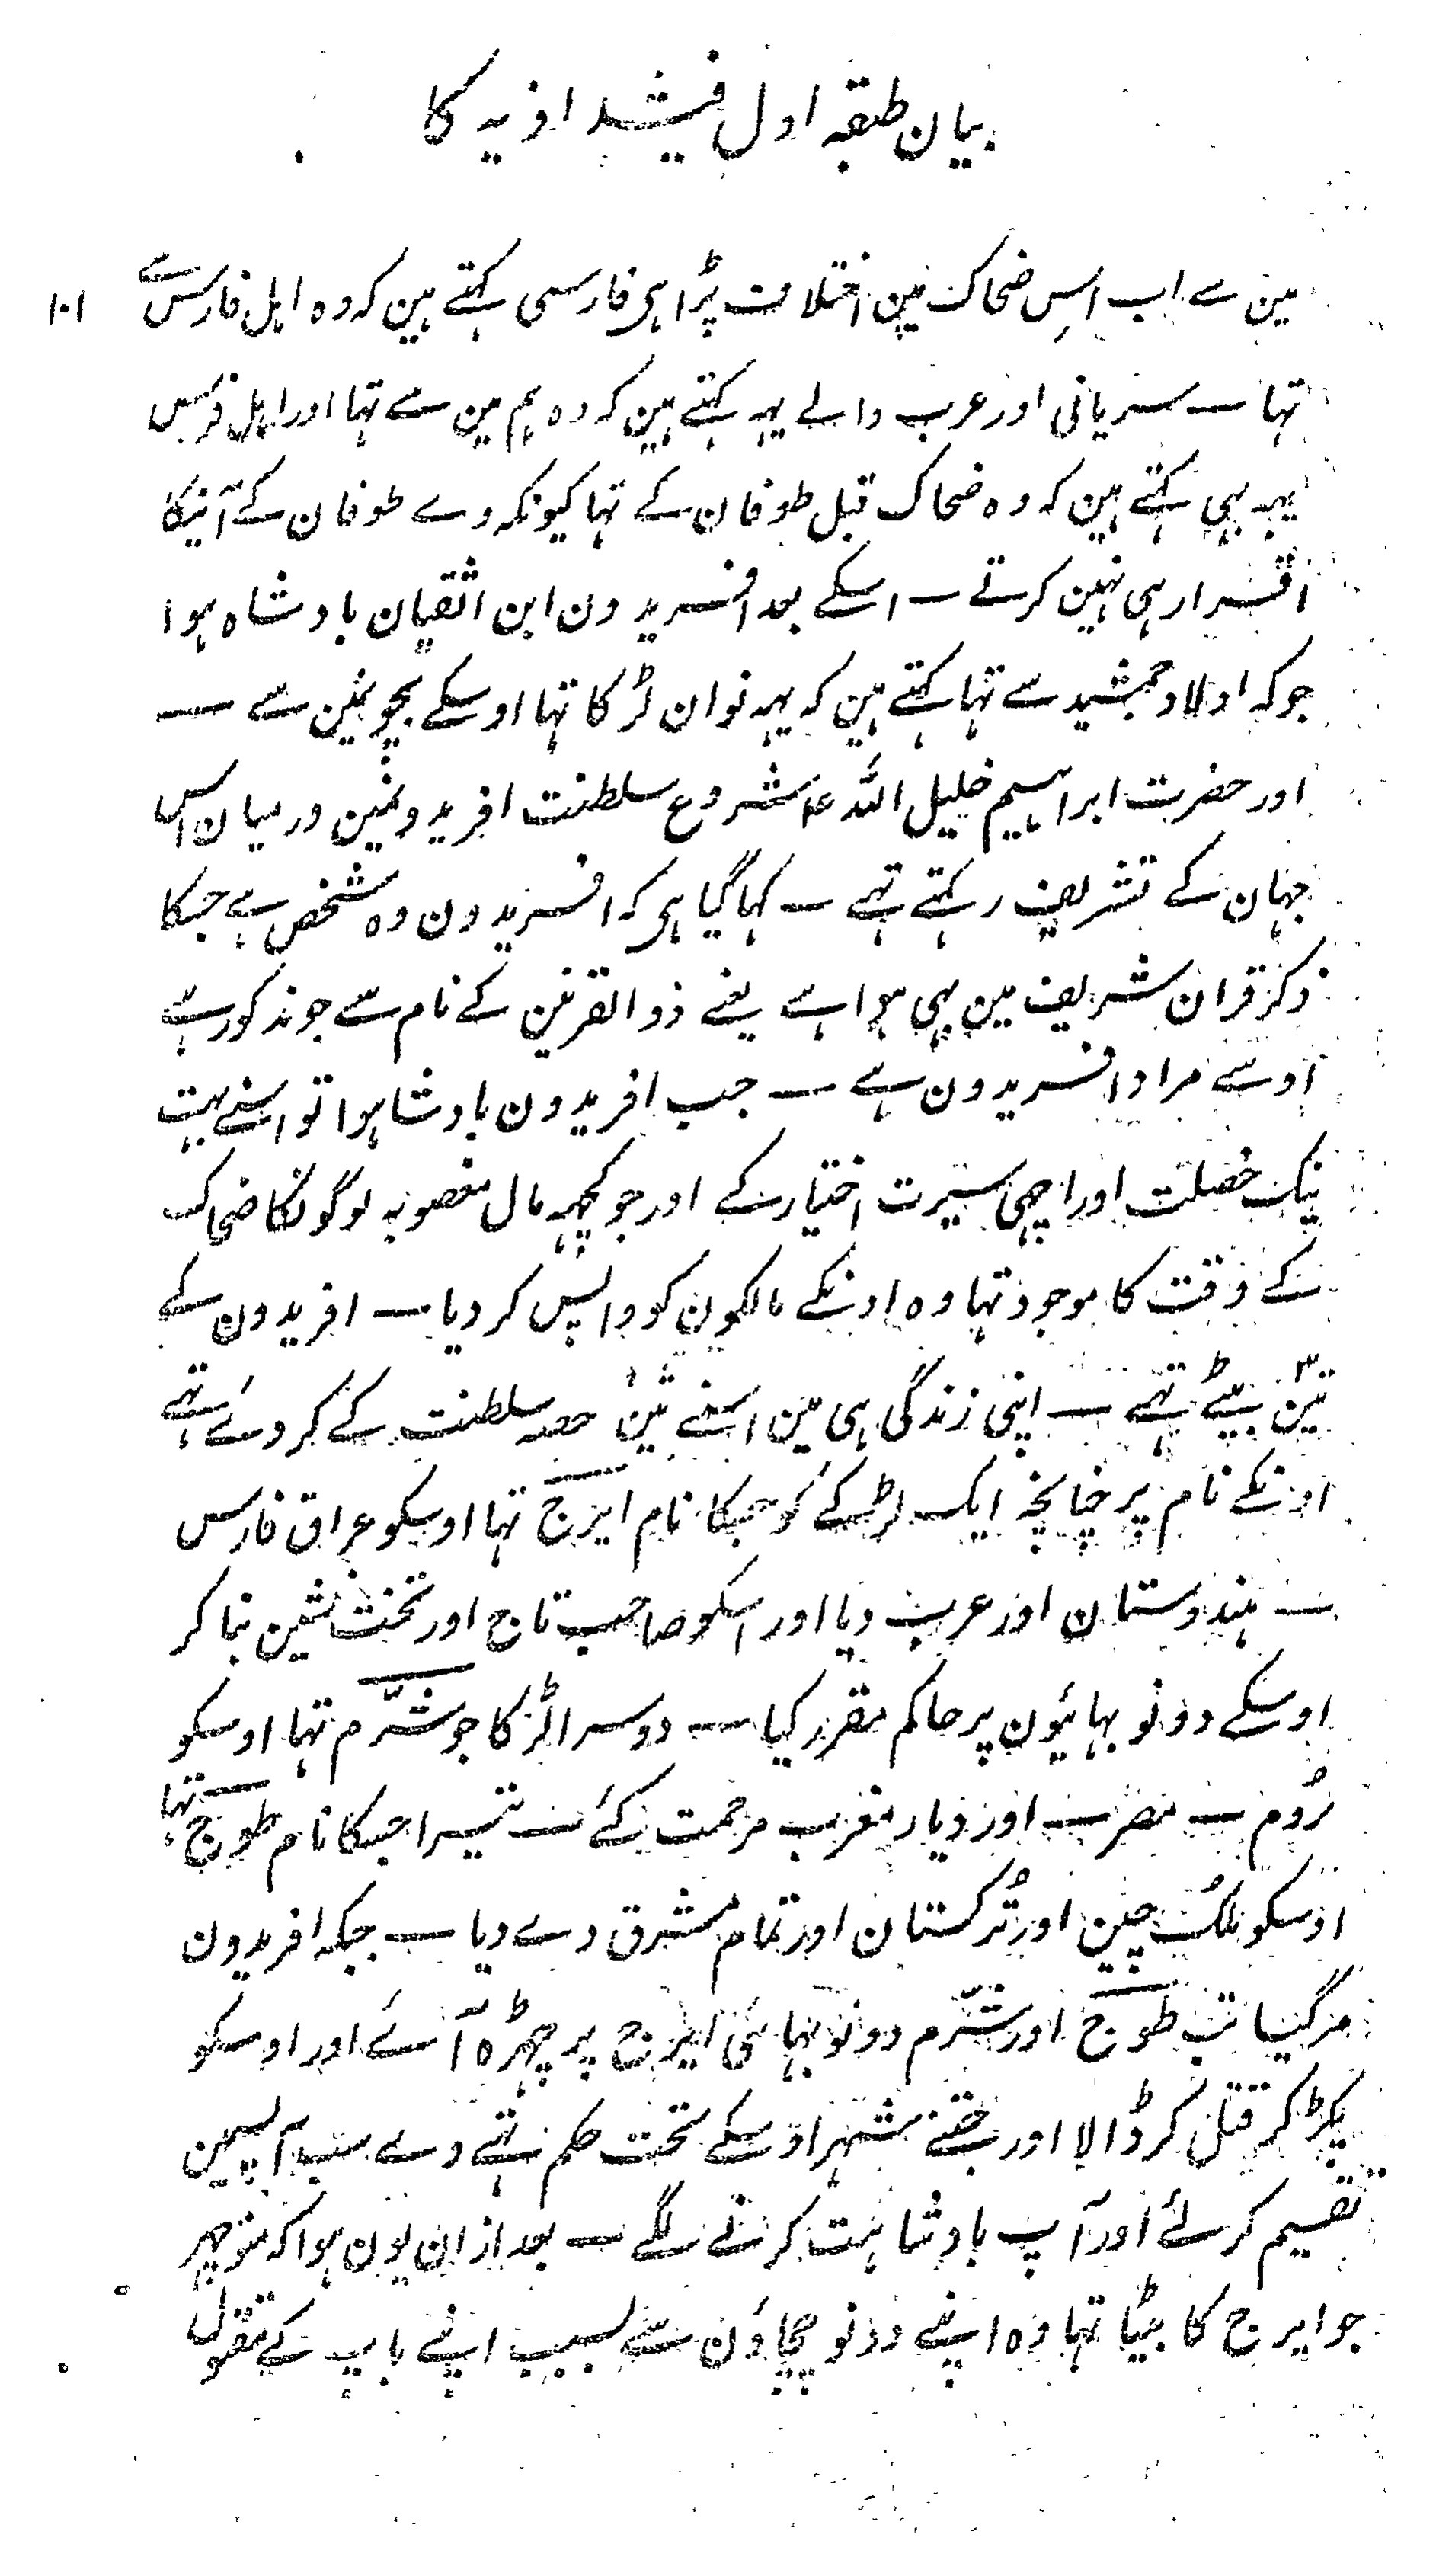 بیان طبقہ اول فیشداذیہ کا
۱۰۱
مین سے اب اس ضحاک مین اختلاف پڑا ہی فارسی کہتے ہین کہ وہ اہل فارس سے
تہا ۔ سریانی اور عرب والے یہہ کہتے ہین کہ وہ ہم مین سے تہا اور اہل فرس
یہہ بہی کہتے ہین کہ وہ ضحاک قبل طوفان کے تہا کیونکہ وے طوفان کے آنیکا
اقرار ہی نہین کرتے ۔ اسکے بعد افریدون ابن اثقیان بادشاہ ہوا
جو کہ اولاد جمشید سے تہا کہتے ہین کہ یہہ نوان لڑکا تہا اوسکے بچونمین سے ۔
اور حضرت ابراہیم خلیل اللہ ع شروع سلطنت افریدونمین درمیان اس
جہان کے تشریف رکہتے تہے ۔ کہا گیا ہی کہ افریدون وہ شخص ہے جسکا
ذکر قران شریف مین بہی ہوا ہے یعنے ذوالقرنین کے نام سے جو مذکور ہے
اوسے مراد افریدون ہے ۔ جب افریدون بادشاہوا تو اسنے بہت
نیک خصلت اور اچہی سیرت اختیار کے اور جو کچہہ مال مغصوبہ لوگونکا ضحاک
کے وقت کا موجود تہا وہ اونکے مالکون کو واپس کر دیا ۔ افریدون کے
تین بیٹے تہے ۔ اپنی زندگی ہی مین اسنے تین حصہ سلطنت کے کر دئے تہے
اونکے نام پر چنانچہ ایک لڑکے کو جسکا نام ایرج تہا اوسکو عراق فارس
۔ ہندوستان اور عرب دیا اور اسکو صاحب تاج اور تخت نشین بنا کر
اوسکے دونو بہائیون پر حاکم مقرر کیا ۔ دوسرا لڑکا جو شرّم تہا اوسکو
رُوم ۔ مصر ۔ اور دیار مغرب مرحمت کئے ۔ تیسرا جسکا نام طوج تہا
اوسکو ملک چین اور تُرکستان اور تمام مشرق دے دیا ۔ جبکہ افریدون
مر گیا تب طوج اور شرّم دونو بہائی ایرج پر چہڑہ آئے اور اوسکو
پکڑ کر قتل کر ڈالا اور جتنے شہر اوسکے تحت حکم تہے وے سب آپسمین
تقسیم کر لئے اور آپ بادشاہت کرنے لگے ۔ بعد ازان یون ہوا کہ منوچہر
جو ایرج کا بیٹا تہا وہ اپنے دونو چچاؤن سے بسبب اپنے باپ کے مقتول